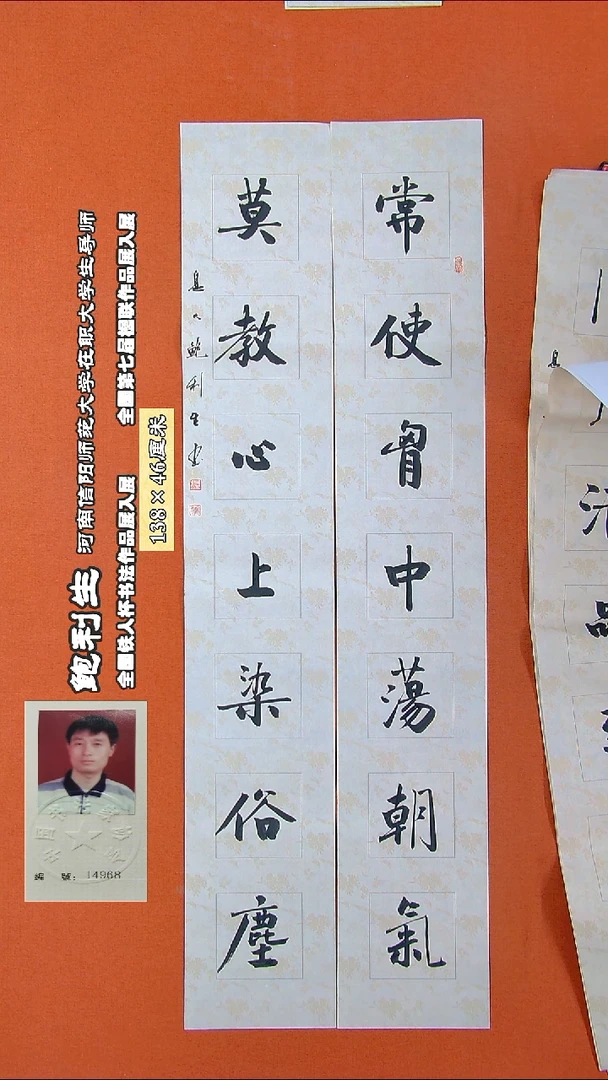 常使胷中蕩朝氣
莫教心上染俗塵
息人鮑利生書
鲍利生
河南信阳师范大学在职大学生导师
全国铁人杯书法作品展入展
全国第七届楹联作品展入展
138×46厘米
编 號：14968